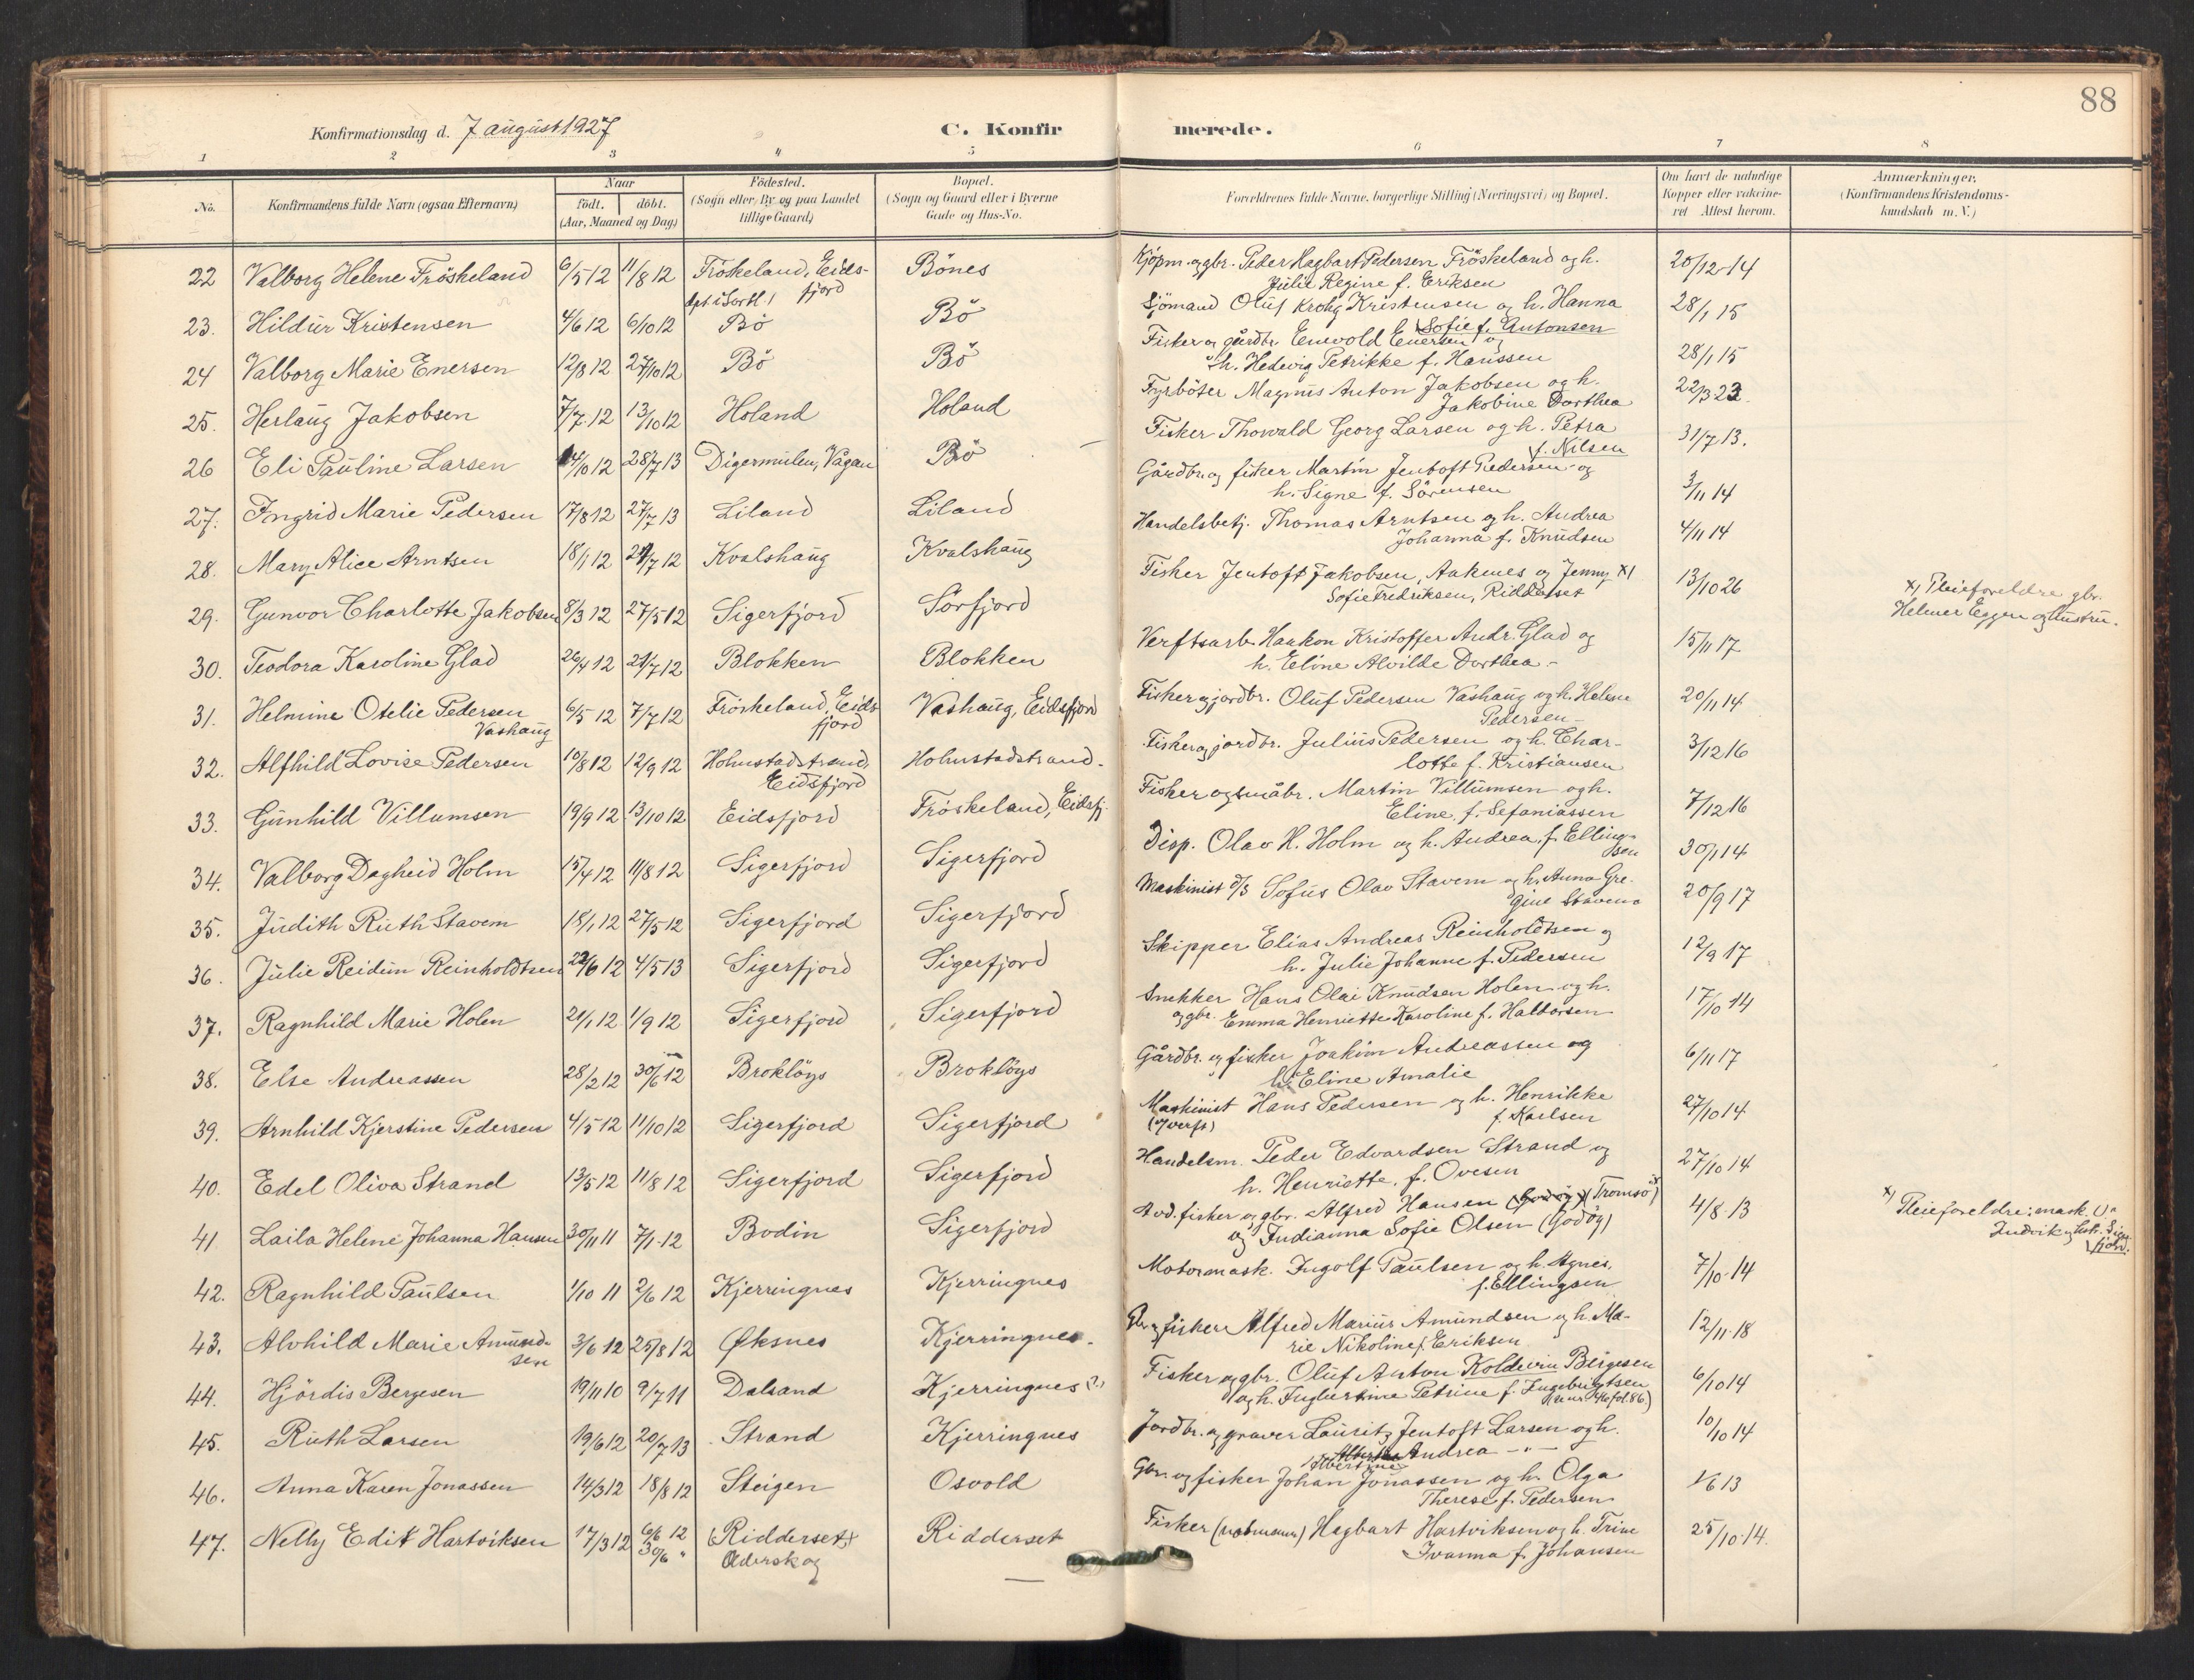 88
Konfirmationsdag d. 7 august 1927
C. Konfirmerede.
1 2 3 4 5 6 7 8
No.
Konfirmandens fulde Navn (ogsaa Efternavn)
Naar
født. døbt.
(Aar, Maaned og Dag)
Fødested.
(Sogn eller By og paa Landet
tillige Gaard)
Bopæl.
(Sogn og Gaard eller i Byerne
Gade og Hus-No.
Forældrenes fulde Navne, borgerlige Stilling (Næringsvei) og Bopæl.
Om havt de naturlige
Kopper eller vakcine-
ret Attest herom.
Anmærkninger.
(Konfirmandens Kristendoms-
kundskab m. V.)
22 Valborg Helene Fröskeland 6/5 12 11/8 12 Fröskeland, Eids-fjord Bönes Kjöpm. og gbr. Peder Hagbart Pedersen Fröskeland og h. Julie Regine f. Eriksen 20/12 14
döpt i Sortl.
23. Hildur Kristensen 4/6 12 6/10 12 Bö Bö Sjömand Oluf Krohg Kristensen og h. Hanna Sofie f. Antonsen 28/1 15
24 Valborg Marie Enersen 12/8 12 27/10 12 Bö Bö Fisker og gårdbr. Enevold Enersen og h. Hedevig Petrikke f. Hanssen 28/1 15
25. Herlaug Jakobsen 7/7 12 13/10 12 Holand Holand Fyrböter Magnus Anton Jakobsen og h. Jakobine Dorthea 22/3 23
26 Eli Pauline Larsen 14/10 12 28/7 13 Digermulen, Vågan Bö Fisker Thorvald Georg Larsen og h. Petra f. Nilsen 31/7 13.
27. Ingrid Marie Pedersen 17/8 12 27/7 13 Liland Liland Gårdbr. og fisker Martin Jentoft Pedersen og h. Signe f. Sörensen 3/11 14
28. Mary Alice Arntsen 18/1 12 21/7 12 Kvalshaug Kvalshaug Handelsbetj. Thomas Arntsen og h. Andrea Johanna f. Knudsen 4/11 14
29. Gunvor Charlotte Jakobsen 8/3 12 27/5 12 Sigerfjord Sörfjord Fisker Jentoft Jakobsen, Asknes og Jenny x) Sofie Fredriksen, Ridderset 13/10 26 x) Pleieforeldre gbr. Helmer Eggen og hustru.
30. Teodora Karoline Glad 26/4 12 21/7 12 Blokken Blokken Verftsarb. Haakon Kristoffer Andr. Glad og h. Eline Alvilde Dorthea - 15/11 17
31. Helmine Otelie Pedersen Vashaug 6/5 12 7/7 12 Fröskeland, Eidsfjord Vashaug, Eidsfjord Fisker og jordbr. Oluf Pedersen Vashaug og h. Helene Pedersen - 20/11 14
32. Alfhild Lovise Pedersen 10/8 12 12/9 12 Holmstadstrand, Eidsfjord Holmstadstrand. Fisker og jordbr. Julius Pedersen og h. Char-lotte f. Kristiansen 3/12 16
33. Gunhild Villumsen 19/9 12 13/10 12 Eidsfjord Fröskeland, Eidsfj. Fisker og småbr. Martin Villumsen og h. Eline f. Sefaniassen 7/12 16
34. Valborg Dagheid Holm 15/4 12 11/8 12 Sigerfjord Sigerfjord Disp. Olav H. Holm og h. Andrea, f. Elling-sen 30/1 14
35. Judith Ruth Stavem 18/1 12 27/5 12 Sigerfjord Sigerfjord Maskinist d/s Sofus Olav Stavem og h. Anna Gre-gine Stavem 20/9 17
36. Julie Reidun Reinholdtsen 22/6 12 4/5 13 Sigerfjord Sigerfjord Skipper Elias Andreas Reinholdtsen og h. Julie Johanne f. Pedersen 12/9 17
37. Ragnhild Marie Holen 21/1 12 1/9 12 Sigerfjord Sigerfjord Snekker og gbr. Hans Olai Knudsen Holen og h. Emma Henriette Karoline f. Haldorsen 17/10 14
38. Else Andreassen 28/2 12 30/6 12 Brokløys Brokløys Gårdbr. og fisker Joakim Andreassen og h. Eline Amalie 6/11 17
39. Arnhild Kjerstine Pedersen 4/5 12 11/10 12 Sigerfjord Sigerfjord Maskinist (v/verft) Hans Pedersen og h. Henrikke f. Karlsen 27/10 14
40. Edel Oliva Strand 13/5 12 11/8 12 Sigerfjord Sigerfjord Handelsm. Peder Edvardsen Strand og h. Henriette, f. Ovesen 27/10 14
41 Laila Helene Johanna Hansen 30/11 11 7/1 12 Bodin Sigerfjord fisker og gbr. Alfred Hansen (Tromsö) x) og Indianna Sofie Olsen (Godöy) 4/8 13 x) Pleieforeldre: mask. Indvik og hstr. Siger-fjord.
42. Ragnhild Paulsen 1/10 11 2/6 12 Kjerringnes Kjerringnes Motormask. Ingolf Paulsen og h. Agnes, f. Ellingsen 7/10 14
43. Alvhild Marie Amund-sen 3/6 12 25/8 12 Øksnes Kjerringnes. Gbr. og fisker Alfred Marius Amundsen og h. Ma-rie Nikoline f. Eriksen 12/11 18
44. Hjördis Bergesen 19/11 10 9/7 11 Dalsand Kjerringnes (?) Fisker og gbr. Oluf Anton Koldevin Bergesen og h. Ingbertine Petrine f. Ingebrigtsen (se nr. 46 fol. 86.) 6/10 14
45. Ruth Larsen 19/6 12 20/7 13 Strand Kjerringnes Jordbr. og graver Lauritz Jentoft Larsen og h. Albertine Andrea -"- 10/10 14
46. Anna Karen Jonassen 14/3 12 18/8 12 Steigen Osvold Gbr. og fisker Johan Jonassen og h. Olga Therese f. Pedersen 1/6 13
47. Nelly Edit Hartviksen 17/3 12 6/6 12 30/6 " (Ridderset) Aderskog Ridderset Fisker Hagbart Hartviksen og h. Trine Ivanna f. Johansen 25/10 14.